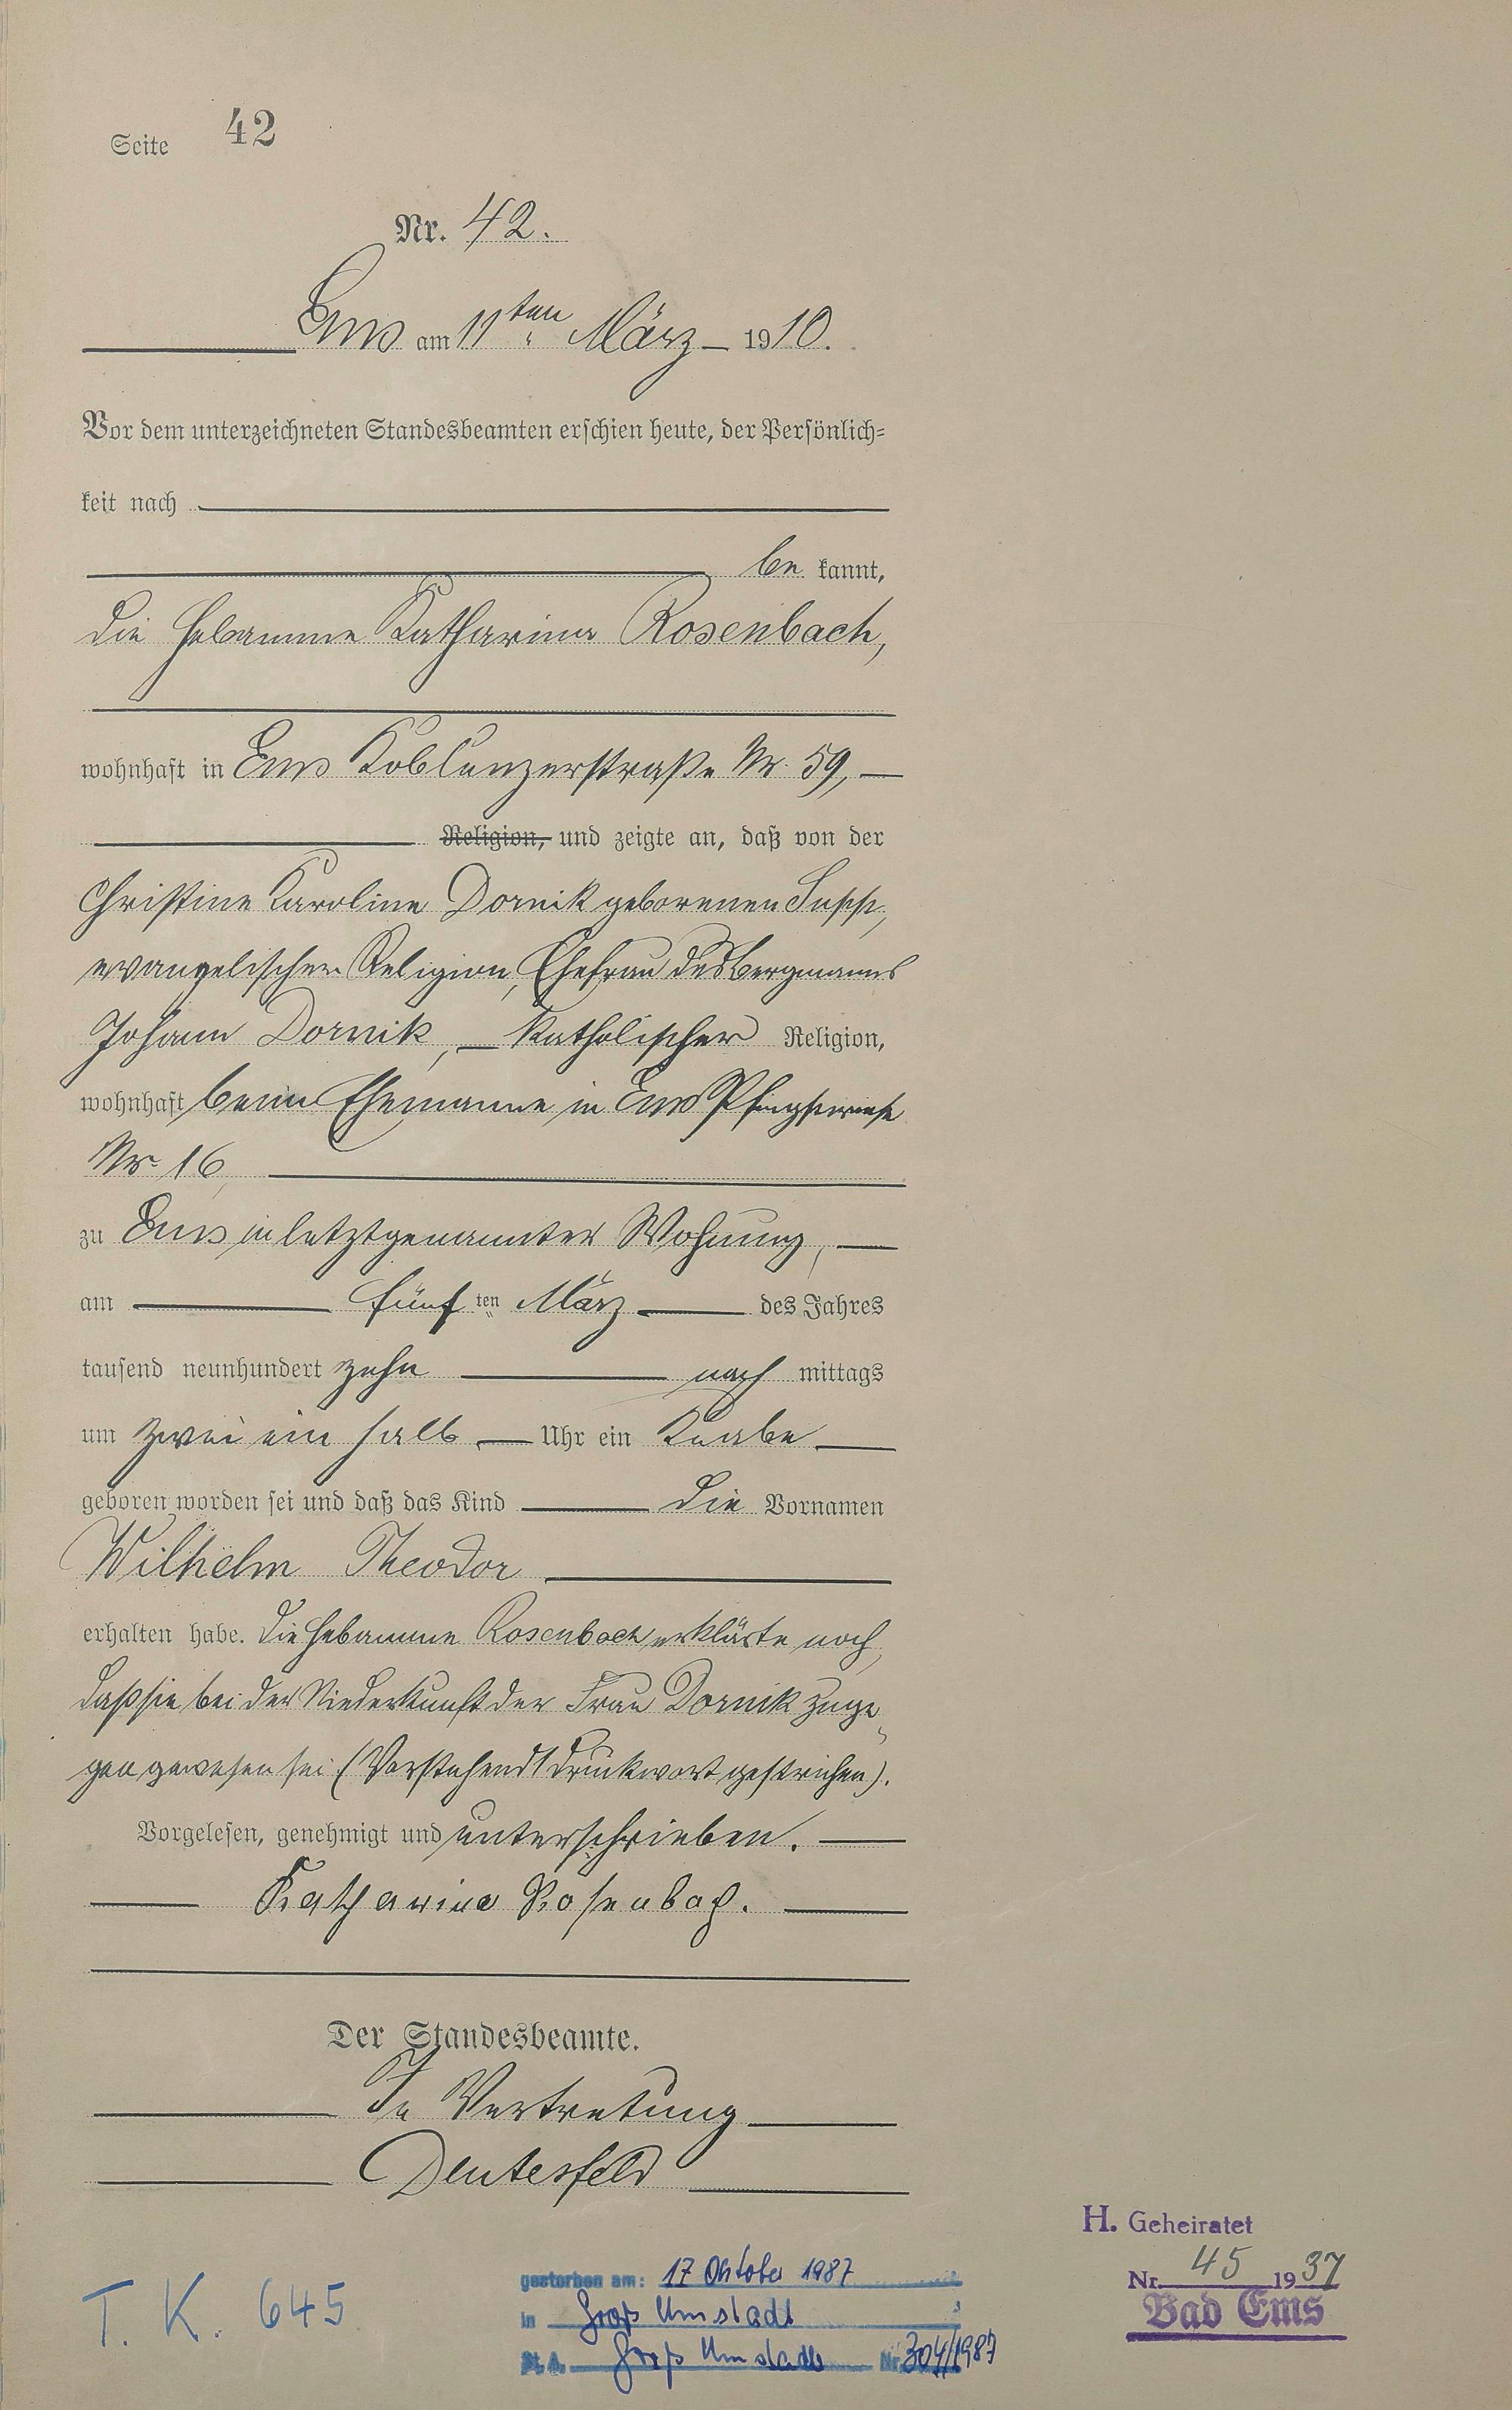 Seite 42
Nr. 42.
Ems am 11ten März 1910.
Vor dem unterzeichneten Standesbeamten erschien heute, der Persönlich-
keit nach
be kannt,
die Hebamme Katharina Rosenbach,
wohnhaft in Ems Koblenzerstraße Nr. 59,
Religion, und zeigte an, daß von der
Christine Karoline Dornik geborenen
evangelischer Religion, Ehefrau des Bergmanns
Johann Dornik, katholischer Religion,
wohnhaft beim Ehemanne in Ems Pfingstwiese
Nr. 16,
zu Ems in letztgenannter Wohnung,
am fünf ten März des Jahres
tausend neunhundert zehn nach mittags
um zwei ein halb Uhr ein Knabe
geboren worden sei und daß das Kind die Vornamen
Wilhelm Theodor
erhalten habe. Die Hebamme Rosenbach erklärte noch,
daß sie bei der Niederkunft der Frau Dornik zuge
gen gewesen sei (Vorstehend 1 Druckwort gestrichen).
Vorgelesen, genehmigt und unterschrieben.
Katharina Rosenbach.
Der Standesbeamte.
In Vertretung
Deutesfeld
H. Geheiratet
Nr. 45 1937
Bad Ems
T. K. 645
gestorben am: 17 Oktober 1987
in Groß Umstadt
St. A. Groß Umstadt Nr. 304/1987